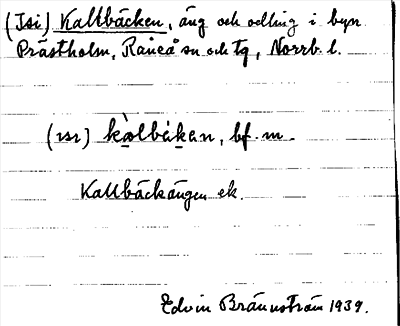 (Isi) Kallbäcken, äng och odling i byn
Prästholm, Råneå sn och tg, Norrb. l.
(ɪsɪ) kàlbäkan, bf. m.
Kallbäckängen ek.
Edvin Brännström 1939.